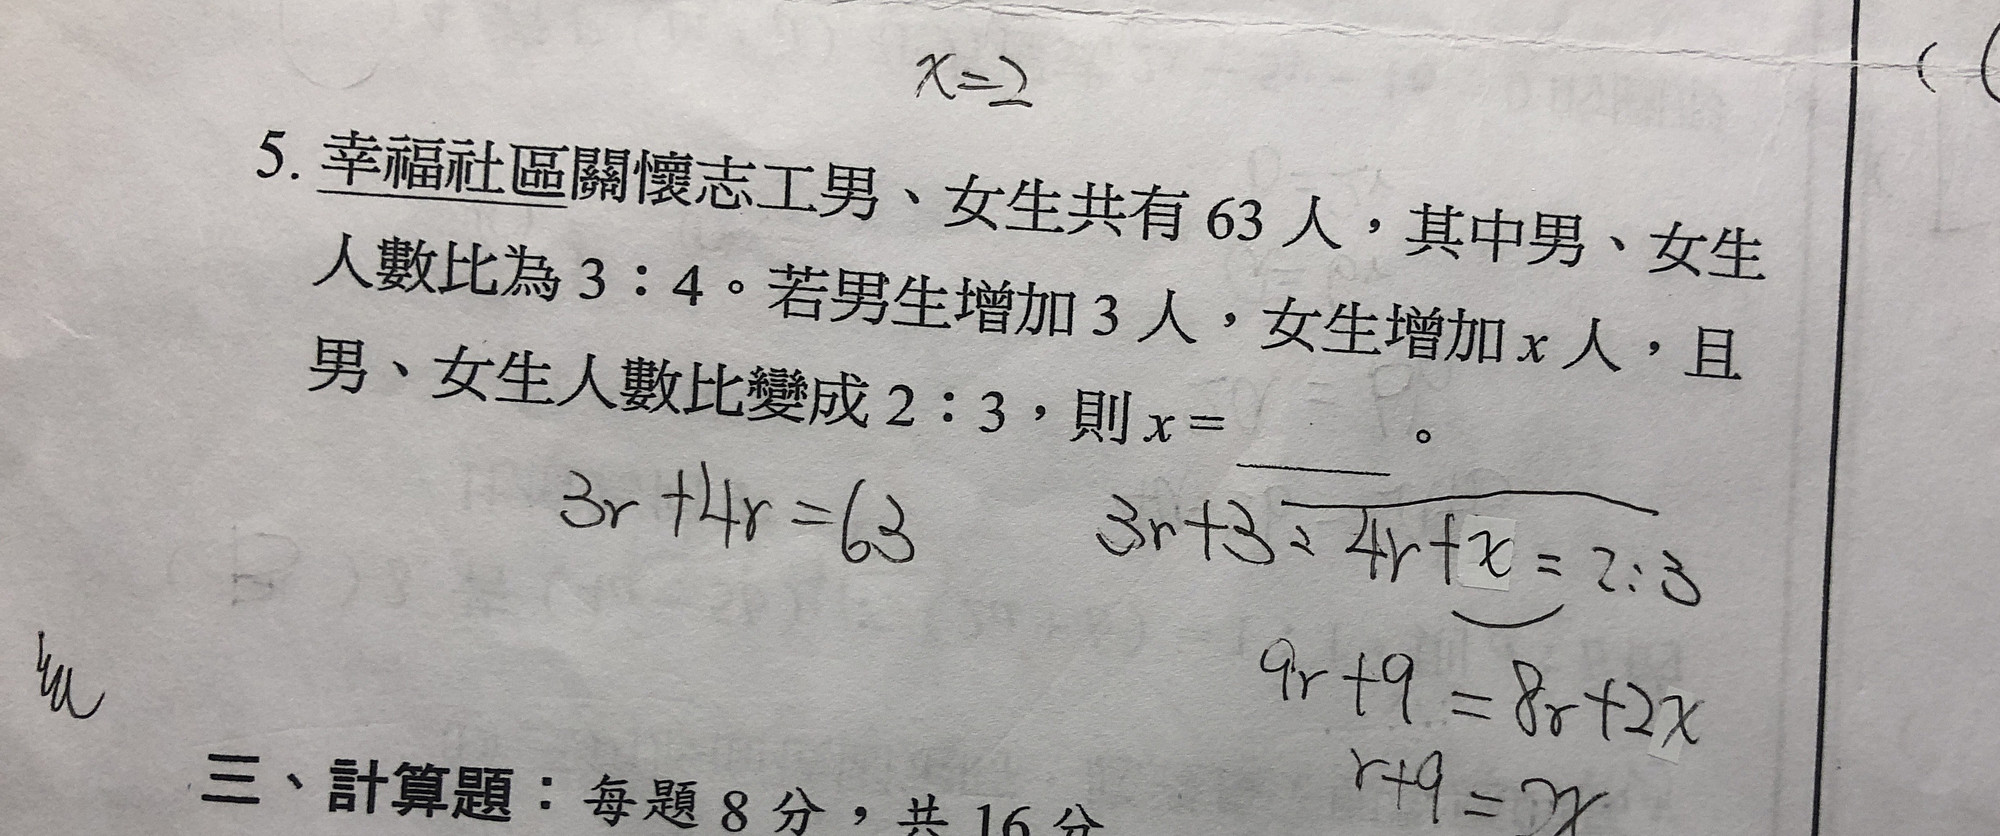 x=2
5. 幸福社區關懷志工男、女生共有 63 人，其中男、女生
人數比為 3：4。若男生增加 3 人，女生增加 x 人，且
男、女生人數比變成 2：3，則 x = ____。
3r+4r=63
3r+3:4r+x=2:3
9r+9=8r+2x
r+9=2x
三、計算題：每題 8 分，共 16 分